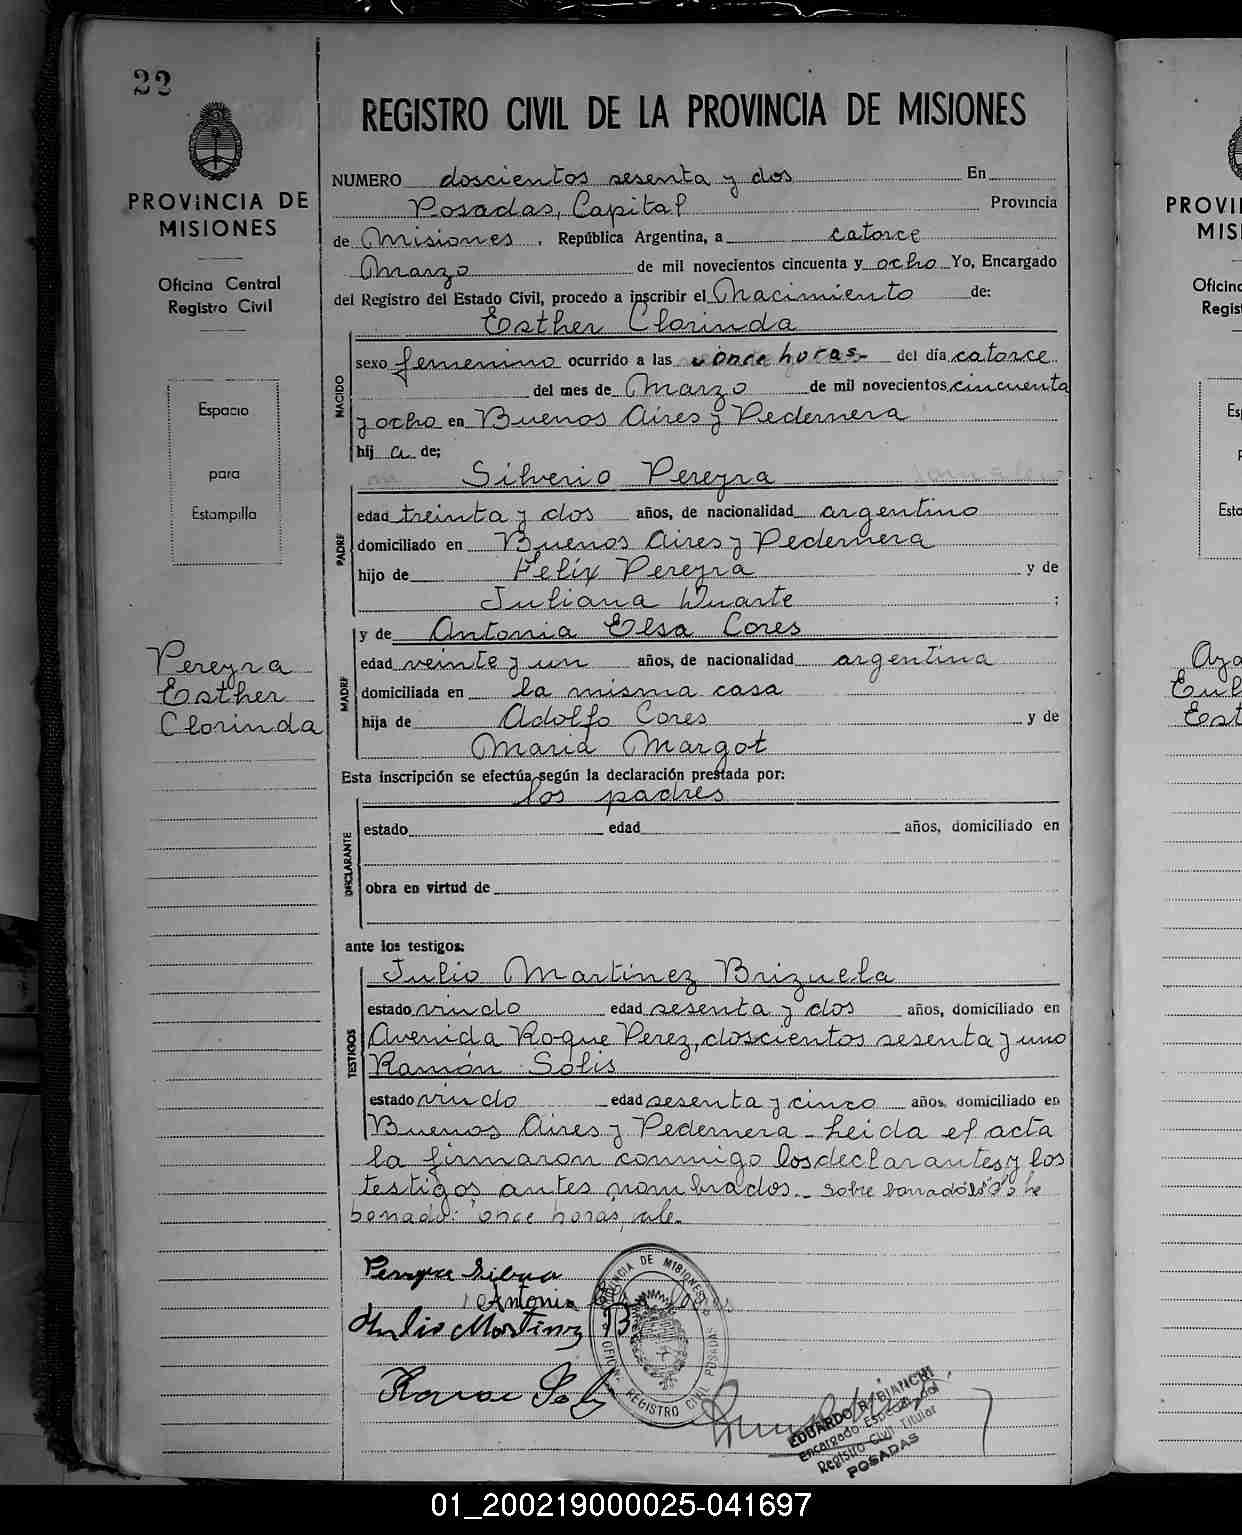 22
REGISTRO CIVIL DE LA PROVINCIA DE MISIONES
PROVINCIA DE
MISIONES
Oficina Central
Registro Civil
Espacio
para
Estampilla
Pereyra
Esther
Clorinda
NUMERO doscientos sesenta y dos En
Posadas, Capital Provincia
de Misiones, República Argentina, a catorce
Marzo de mil novecientos cincuenta y ocho Yo, Encargado
del Registro del Estado Civil, procedo a inscribir el Nacimiento de:
Esther Clorinda
NACIDO
sexo femenino ocurrido a las once horas- del día catorce
del mes de Marzo de mil novecientos cincuenta
y ocho en Buenos Aires y Pedernera
hij a de;
Silverio Pereyra
PADRE
edad treinta y dos años, de nacionalidad argentino
domiciliado en Buenos Aires y Pedernera
hijo de Felix Pereyra y de
Juliana Duarte ;
y de Antonia Elsa Cores
MADRE
edad veinte y un años, de nacionalidad argentina
domiciliada en la misma casa
hija de Adolfo Cores y de
Maria Margot
Esta inscripción se efectúa según la declaración prestada por:
los padres
DECLARANTE
estado edad años, domiciliado en
obra en virtud de
ante los testigos:
Julio Martinez Brizuela
TESTIGOS
estado viudo edad sesenta y dos años, domiciliado en
Avenida Roque Perez, doscientos sesenta y uno
Ramón Solis
estado viudo edad sesenta y cinco años, domiciliado en
Buenos Aires y Pedernera - Leida el acta
la firmaron conmigo los declarantes y los
testigos antes nombrados.- Sobre
once horas, vale-
Antonia
Julio Martinez B
PROVINCIA DE MISIONES
REGISTRO CIVIL POSADAS
EDUARDO R. BIANCHI
Encargado Especial del
Registro Civil Titular
POSADAS
PROVI
MIS
Oficina
Regist
Es
Esta
Eul
Est
01_200219000025-041697